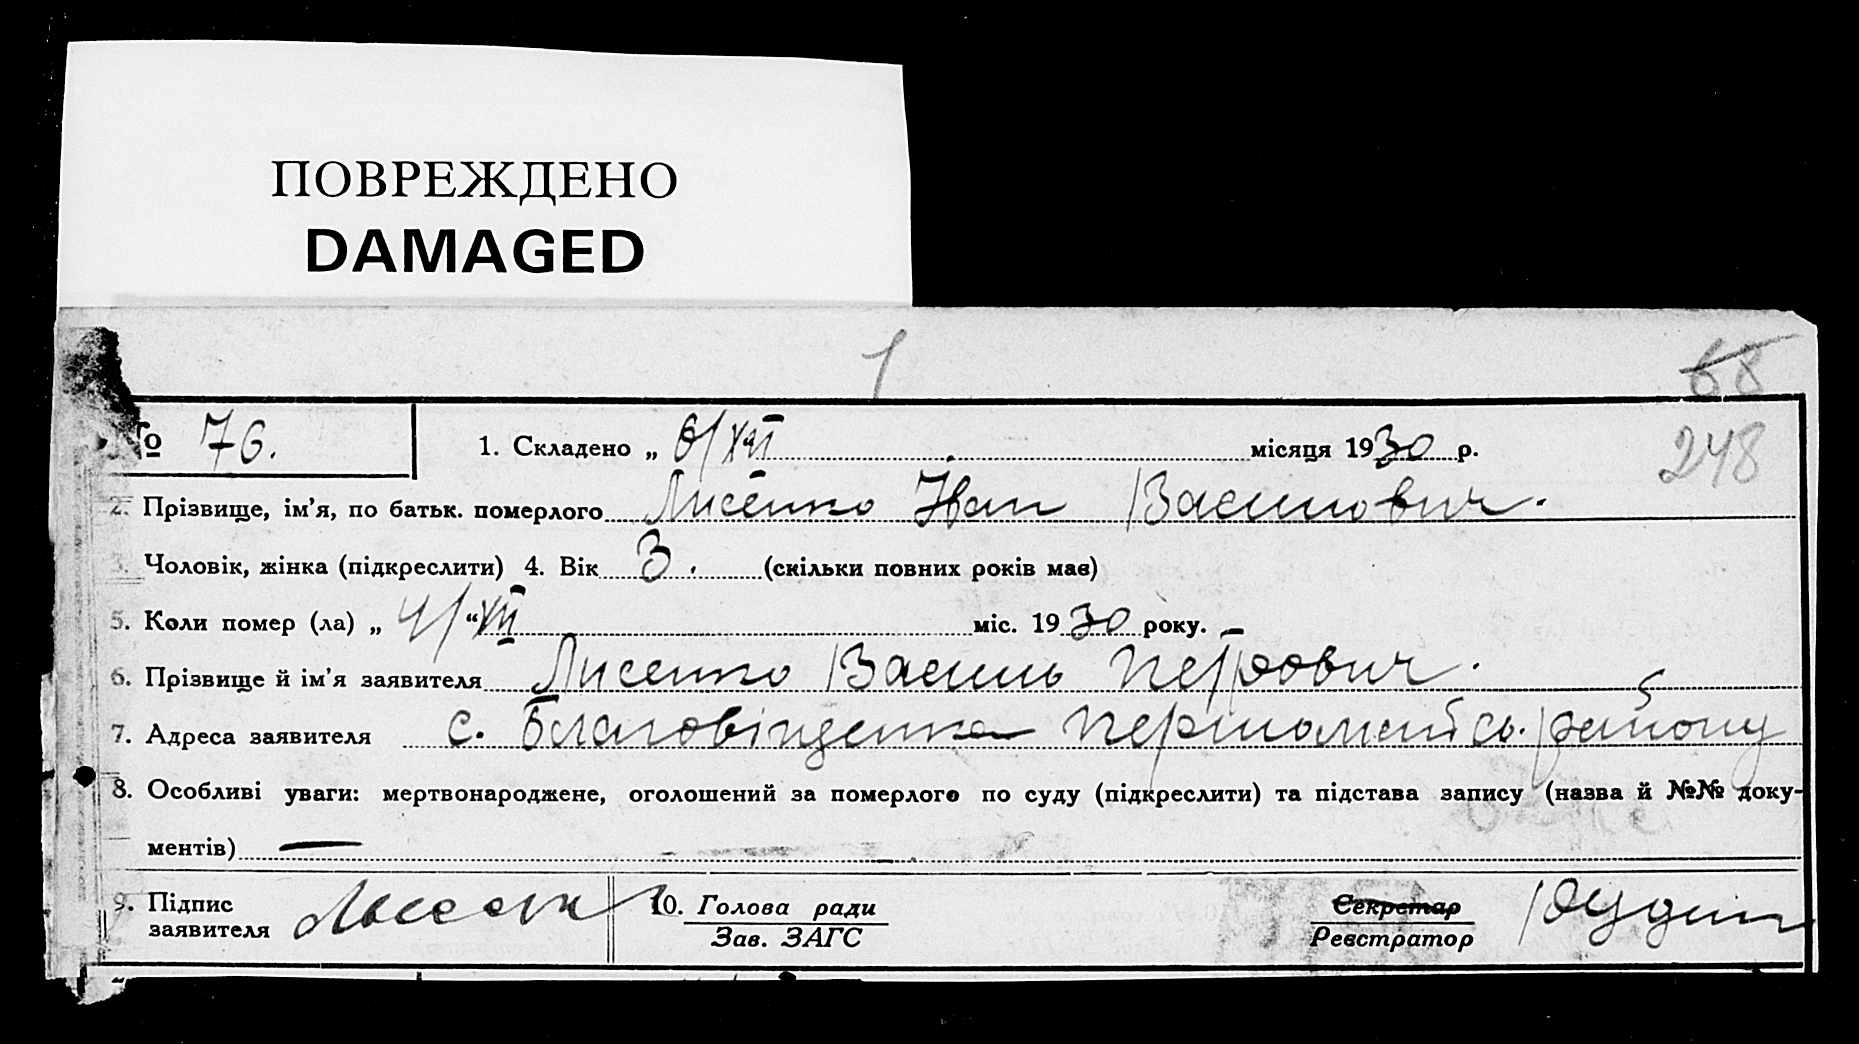 ПОВРЕЖДЕНО
DAMAGED
1
68
№ 76.
1. Складено „ 6/XII місяця 1930 р.
248
2. Прізвище, ім'я, по батьк. померлого Лисенко Іван Васильович.
3. Чоловік, жінка (підкреслити) 4. Вік 3. (скільки повних років має)
5. Коли помер (ла) „ 4/“XII міс. 1930 року. —
6. Прізвище й ім'я заявителя Лисенко Василь Петрович.
7. Адреса заявителя с. Благовіщенка Першомайсь. району
8. Особливі уваги: мертвонароджене, оголошений за померлого по суду (підкреслити) та підстава запису (назва й №№ доку-
ментів) —
9. Підпис
заявителя
10. Голова ради
Зав. ЗАГС
Секретар
Реєстратор